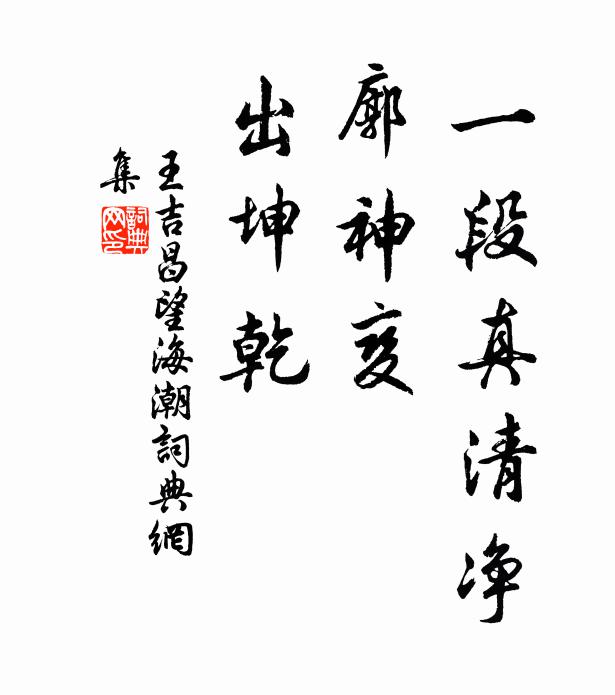 一段真清净
廓神变
出坤乾
王吉昌望海潮詞典網
集
詞典
网印